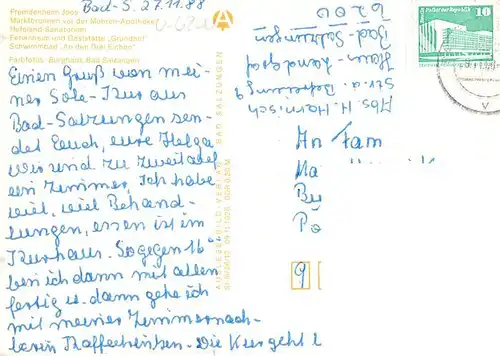 Bad-S. 27.11.88
Fremdenheim Joos
Marktbrunnen vor der Mohren-Apotheke
Hufeland-Sanatorium
Ferienheim und Gaststätte „Grundhof“
Schwimmbad „An den Drei Eichen“
Farbfotos: Burghaus, Bad Salzungen
Einen Gruß von mei-
ner Sole-Kur aus
Bad-Salzungen sen-
det Euch, eure Helga
Wir sind zu zweit auf
ein Zimmer, Ich habe
viel, viel Behand-
lungen, essen ist im
Kurhaus. So gegen 16
bin ich dann mit allem
fertig u. dann gehe ich
mit meiner Zimmernach-
barin Kaffeetrinken. Die Kur geht
AUSLESE-BILD-VERLAG BAD SALZUNGEN
Abs. H. Harnisch
Str. d. Befreiung 9
Haus-Landgraf
Bad-Salzungen
6200
10
An Fam
Ma
Bu
Po
9